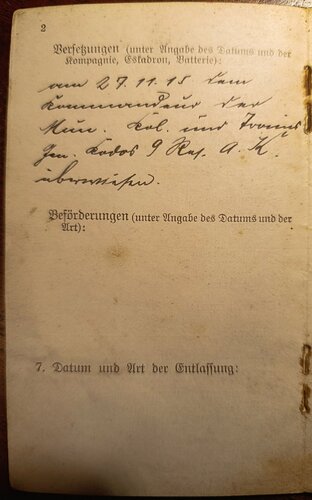 2
Versetzungen (unter Angabe des Datums und der
Kompagnie, Eskadron, Batterie):
am 27.11.15 dem
Kommandeur der
Mun. Kol. und Trains
9 Res. A. K.
überwiesen.
Beförderungen (unter Angabe des Datums und der
Art):
7. Datum und Art der Entlassung: